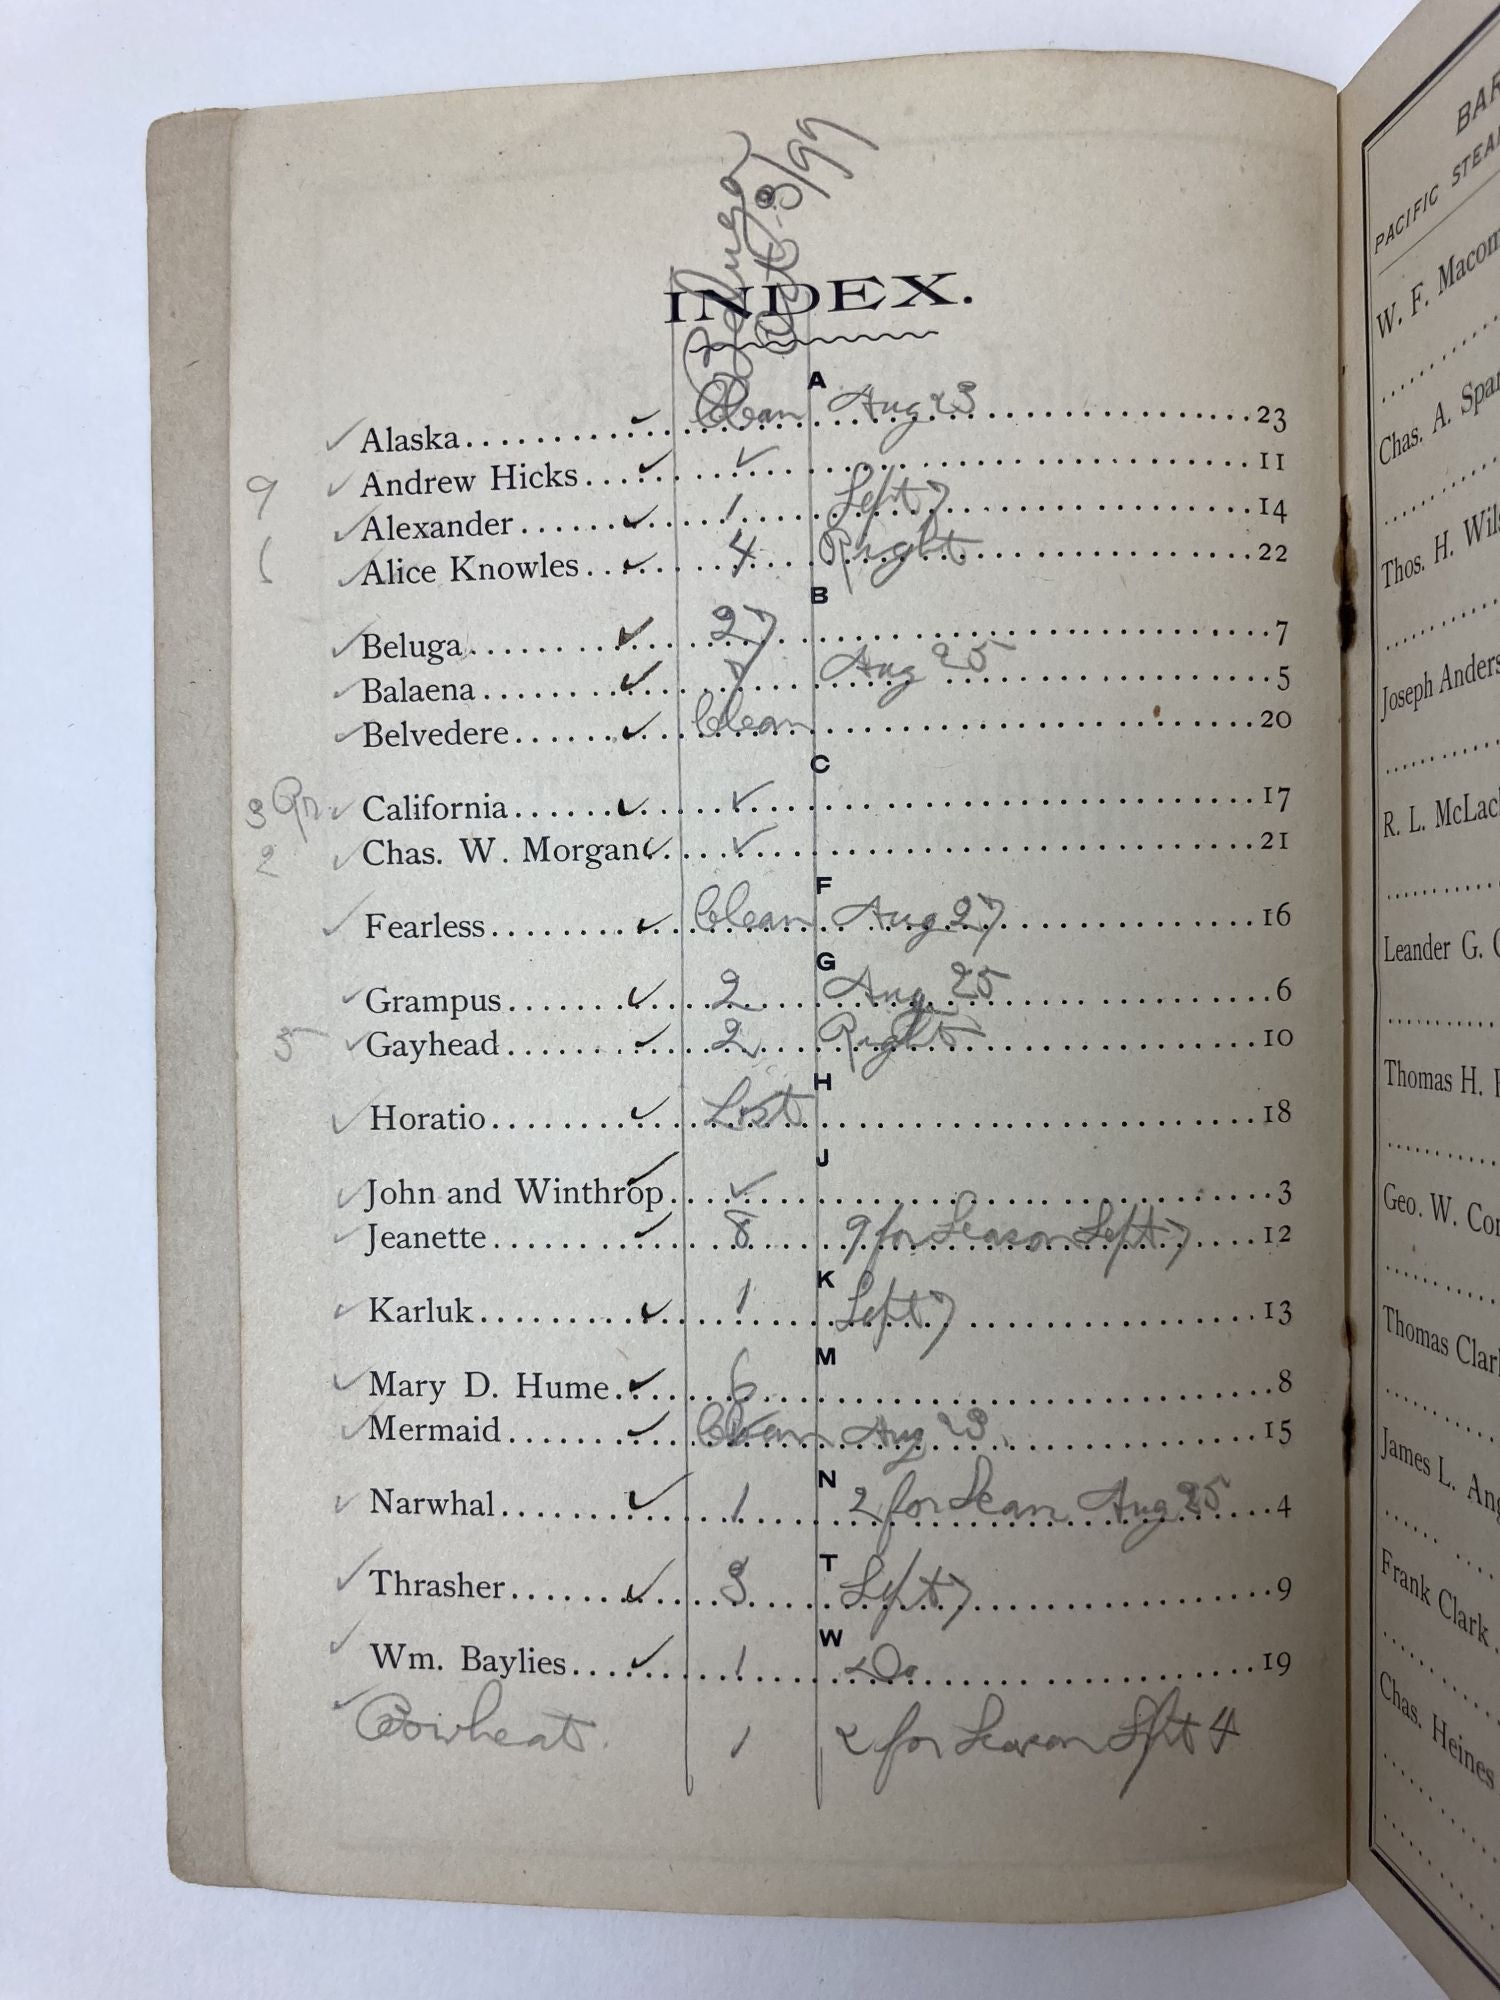 Beluga
Oct 8/99
INDEX.
A
✓ Alaska ........ ✓ Clean Aug 23 ........ 23
✓ Andrew Hicks ........ ✓ ✓ ........ 11
9 ✓ Alexander ........ ✓ 1 Sept 7 ........ 14
✓ Alice Knowles ........ ✓ 4 Right ........ 22
B
✓ Beluga ........ ✓ 27 ........ 7
✓ Balaena ........ ✓ Aug 25 ........ 5
✓ Belvedere ........ ✓ Clean ........ 20
C
3 ✓ California ........ ✓ ✓ ........ 17
2 ✓ Chas. W. Morgan ✓ ........ ✓ ........ 21
F
✓ Fearless ........ ✓ Clean Aug 27 ........ 16
G
✓ Grampus ........ ✓ 2 Aug 25 ........ 6
5 ✓ Gayhead ........ ✓ 2 Right ........ 10
H
✓ Horatio ........ ✓ Lost ........ 18
J
✓ John and Winthrop ✓ ........ ✓ ........ 3
✓ Jeanette ........ ✓ 8 9 for Season Sept 7 ........ 12
K
✓ Karluk ........ ✓ 1 Sept 7 ........ 13
M
✓ Mary D. Hume ........ ✓ 6 ........ 8
✓ Mermaid ........ ✓ Clean Aug 23 ........ 15
N
✓ Narwhal ........ ✓ 1 2 for Sean Aug 25 ........ 4
T
✓ Thrasher ........ ✓ 3 Sept 7 ........ 9
W
✓ Wm. Baylies ........ ✓ 1 Do ........ 19
✓ Bowheat. 1 2 for Season Sept 4
BAR
PACIFIC STEA
W. F. Macom
Chas. A. Spar
Thos. H. Wil
Joseph Anders
R. L. McLac
Leander G.
Thomas H.
Geo. W. Co
Thomas Clar
James L. Ang
Frank Clark
Chas. Heines